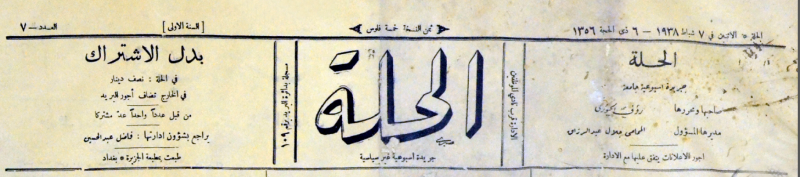 الحلة ــ الاثنين في ٧ شباط ١٩٣٨ ــ ٦ ذي الحجة ١٣٥٦
ثمن النسخة خمسة فلوس
[ السنة الاولى ]
العدد ــ ٧
الحلة
جريدة اسبوعية جامعة
صاحبها ومحررها رؤوف الجبوري
مديرها المسؤول المحامي جلال عبد الرزاق
اجور الاعلانات يتفق عليها مع الادارة
الادارة قرب نادي الموظفين
الحلة
جريدة اسبوعية غير سياسية
مسجلة بدائرة البريد برقم ١٠٩
بدل الاشتراك
في الحلة : نصف دينار
في الخارج تضاف أجور البريد
من قبل عدداً واحداً عد مشتركا
يراجع بشؤون ادارتها : فاضل عبد الحسين
طبعت بمطبعة الجزيرة * بغداد